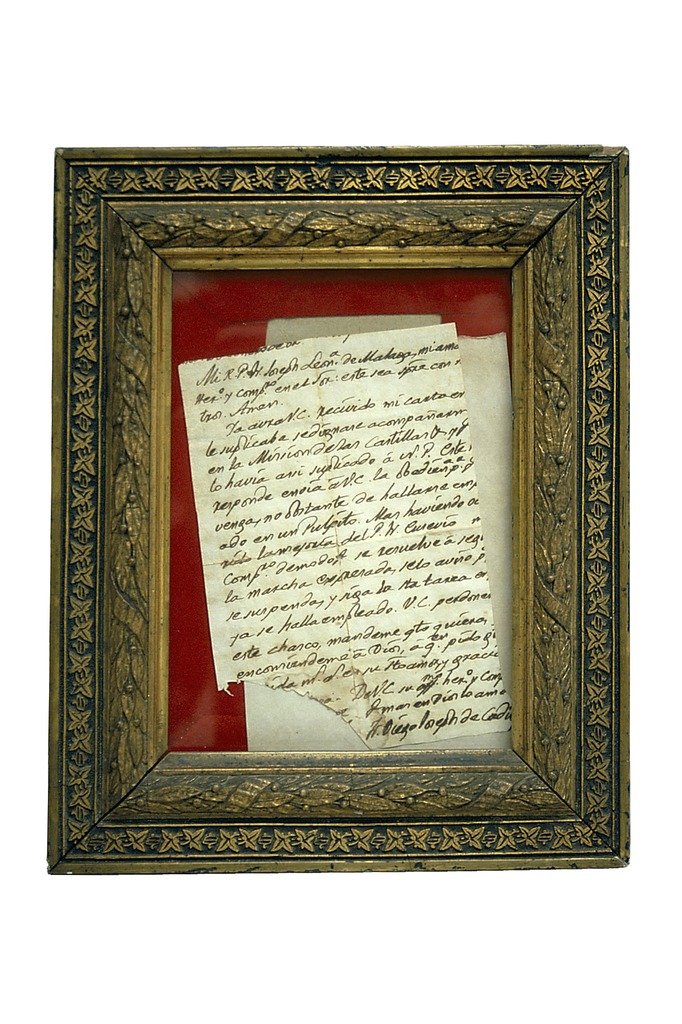 Mi R. P. Fr. Joseph Leonª. de Malaga, mi ama
Herº. y Compº. en el Sor.: este sea spre con
tros. Amen.
Ya avra V.C. recivido mi carta en
le suplicaba se dignare acompañarm
en la Mision de las Castillas, y
lo havia asi suplicado à N. P. Este
responde envia à V.C. la obediena. pª. q
venga, no obstante de hallarse em
ado en un Pulpito. Mas haviendo
la mejoria del P. Fr. Guevio
Compro. de modo q se resuelve à seg
la marcha emprenada, selo aviso p
se suspenda, y siga la Sta tarea en
ya se halla empleado. V.C. perdone
este chasco, mandeme qto quiera,
encomiendeme à Dios, à q. en pido g
de su V.C. m. a. en su Sto amor, y gracia
De V.C. su mr. herº. y Comp
q mas en Dios lo ama
Fr. Diego Joseph de Cadiz